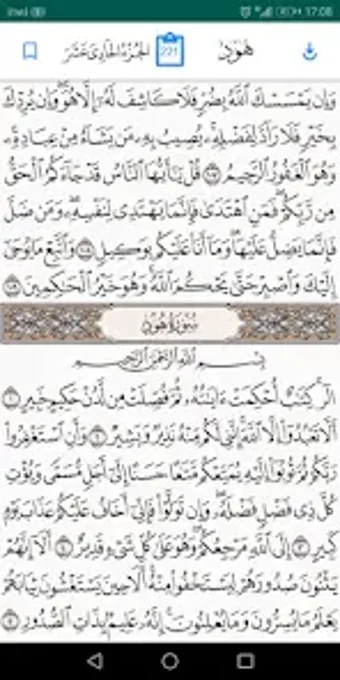 inwi 17:08
هُود 221 الجزء الحادي عشر
وَإِن يَمْسَسْكَ ٱللَّهُ بِضُرٍّ فَلَا كَاشِفَ لَهُۥٓ إِلَّا هُوَ ۖ وَإِن يُرِدْكَ
بِخَيْرٍ فَلَا رَآدَّ لِفَضْلِهِۦ ۚ يُصِيبُ بِهِۦ مَن يَشَآءُ مِنْ عِبَادِهِۦ ۚ
وَهُوَ ٱلْغَفُورُ ٱلرَّحِيمُ ١٠٧ قُلْ يَـٰٓأَيُّهَا ٱلنَّاسُ قَدْ جَآءَكُمُ ٱلْحَقُّ
مِن رَّبِّكُمْ ۖ فَمَنِ ٱهْتَدَىٰ فَإِنَّمَا يَهْتَدِى لِنَفْسِهِۦ ۖ وَمَن ضَلَّ
فَإِنَّمَا يَضِلُّ عَلَيْهَا ۖ وَمَآ أَنَا۠ عَلَيْكُم بِوَكِيلٍ ١٠٨ وَٱتَّبِعْ مَا يُوحَىٰٓ
إِلَيْكَ وَٱصْبِرْ حَتَّىٰ يَحْكُمَ ٱللَّهُ ۚ وَهُوَ خَيْرُ ٱلْحَـٰكِمِينَ ١٠٩
سُورَةُ هُودٍ
بِسْمِ ٱللَّهِ ٱلرَّحْمَـٰنِ ٱلرَّحِيمِ
الٓر ۚ كِتَـٰبٌ أُحْكِمَتْ ءَايَـٰتُهُۥ ثُمَّ فُصِّلَتْ مِن لَّدُنْ حَكِيمٍ خَبِيرٍ ١
أَلَّا تَعْبُدُوٓا۟ إِلَّا ٱللَّهَ ۚ إِنَّنِى لَكُم مِّنْهُ نَذِيرٌ وَبَشِيرٌ ٢ وَأَنِ ٱسْتَغْفِرُوا۟
رَبَّكُمْ ثُمَّ تُوبُوٓا۟ إِلَيْهِ يُمَتِّعْكُم مَّتَـٰعًا حَسَنًا إِلَىٰٓ أَجَلٍ مُّسَمًّى وَيُؤْتِ
كُلَّ ذِى فَضْلٍ فَضْلَهُۥ ۖ وَإِن تَوَلَّوْا۟ فَإِنِّىٓ أَخَافُ عَلَيْكُمْ عَذَابَ يَوْمٍ
كَبِيرٍ ٣ إِلَى ٱللَّهِ مَرْجِعُكُمْ ۖ وَهُوَ عَلَىٰ كُلِّ شَىْءٍ قَدِيرٌ ٤ أَلَآ إِنَّهُمْ
يَثْنُونَ صُدُورَهُمْ لِيَسْتَخْفُوا۟ مِنْهُ ۚ أَلَا حِينَ يَسْتَغْشُونَ ثِيَابَهُمْ
يَعْلَمُ مَا يُسِرُّونَ وَمَا يُعْلِنُونَ ۚ إِنَّهُۥ عَلِيمٌۢ بِذَاتِ ٱلصُّدُورِ ٥